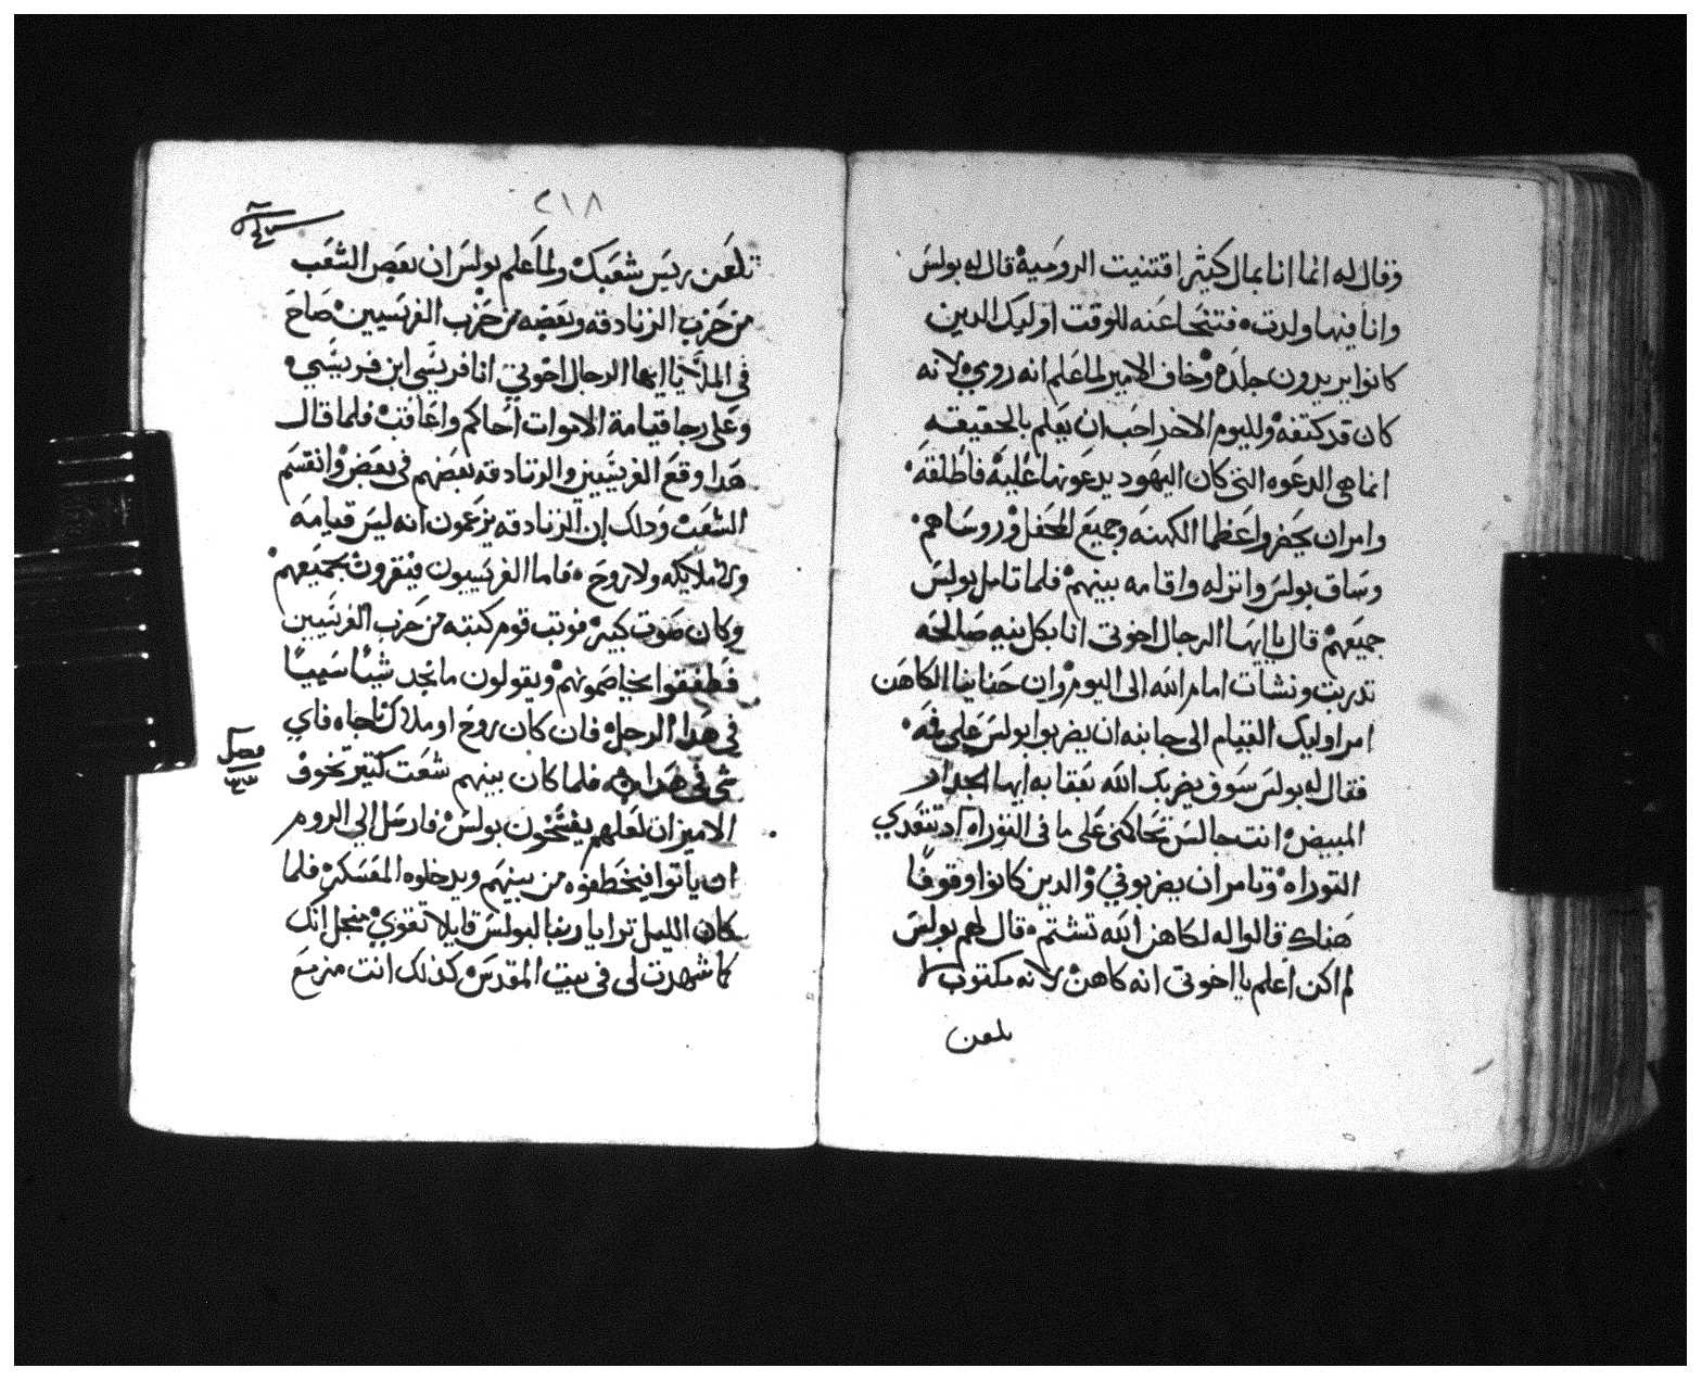 وقال له انما انا بمال كثير اقتنيت الروميه قال له بولس
وانا فيها ولدت فتنحا عنه للوقت اوليك الدين
كانوا يريدون جلده وخاف الامير لما علم انه رومي لانه
كان قد كتفه ولليوم الاخر احب ان يعلم بالحقيقه
انما هي الدعوه التي كان اليهود يدعونها عليه فاطلقه
وامر ان يحضروا عظما الكهنه وجميع المحفل وروساهم
وساق بولس وانزله واقامه بينهم فلما تامل بولس
جميعهم قال يا ايها الرجال اخوتي انا بكل نيه صالحه
تدربت ونشات امام الله الى اليوم وان حنانيا الكاهن
امر اوليك القيام الى جانبه ان يضربوا بولس على فمه
فقال له بولس سوف يضربك الله بعقابه ايها الجدار
المبيض انت جالس تحاكمني على ما في التوراه اد تتعدي
التوراه وتامر ان يضربوني والدين كانوا وقوفا
هناك قالوا له لكاهن الله تشتم قال لهم بولس
لم اكن اعلم يا اخوتي انه كاهن لانه مكتوب لا
تلعن
٢١٨
تلعن ريس شعبك ولما علم بولس ان بعض الشعب
من حزب الزنادقه وبعضه من حزب الفريسيين صاح
في الملا يا ايها الرجال اخوتي انا فريسي ابن فريسي
وعلى رجا قيامة الاموات احاكم واعاقب فلما قال
هدا وقع الفريسيين والزنادقه بعضهم في بعض وانقسم
الشعب ودلك ان الزنادقه يزعمون انه ليس قيامه
ولا ملايكه ولا روح فاما الفريسيون فيقرون بجميعهم
وكان صوت كبير فوتب قوم كتبه من حزب الفريسيين
فطفقوا يخاصمونهم ويقولون ما نجد شيا سييا
في هدا الرجل فان كان روح او ملاك ناجاه فاي
شي في هدا فلما كان بينهم شعب كتير تخوف
الامير ان لعلهم يفسخون بولس فارسل الي الروم
ان ياتوا فيخطفوه من بينهم ويدخلوه المعسكر فلما
كان الليل ترايا ربنا لبولس قايلا تقوي منجل انك
كما شهدت لي في بيت المقدس كذلك انت مزمع
فصل
٣٣